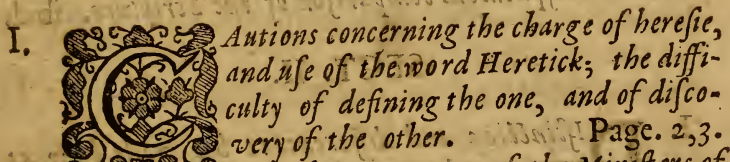 I. CAutions concerning the charge of hereſie,
and uſe of the word Heretick; the diffi-
culty of defining the one, and of diſco-
very of the other. Page. 2,3.
of the Miniſters of